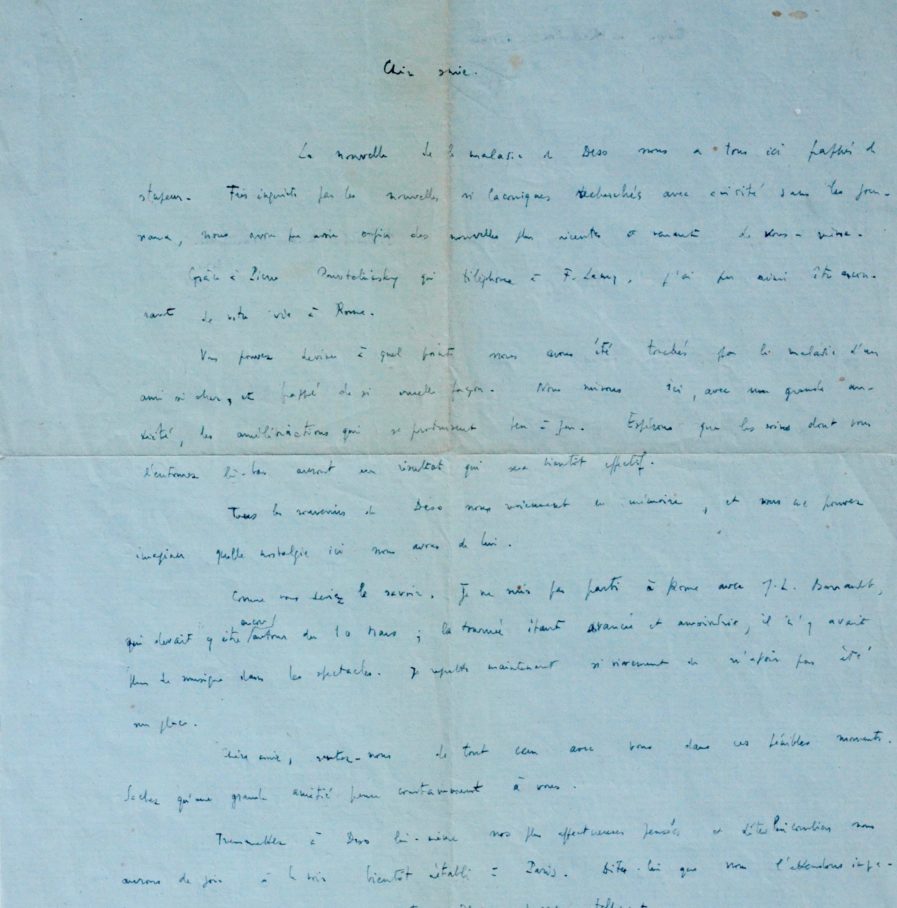 Chère amie.
La nouvelle de la maladie de Deso nous a tous ici frappés de
stupeur. Très inquiets par les nouvelles si laconiques recherchées avec avidité dans les jour-
naux, nous avons pu avoir enfin des nouvelles plus récentes et venant de vous-même.
Grâce à Pierre qui téléphone à F. Lamy, j'ai pu ainsi être au cou-
rant de votre vie à Rome.
Vous pouvez deviner à quel point nous avons été touchés par la maladie d'un
ami si cher, et frappé de si cruelle façon. Nous suivons ici, avec une grande an-
xiété, les améliorations qui se produisent peu à peu. Espérons que les soins dont vous
l'entourez là-bas auront un résultat qui sera bientôt effectif.
Tous les souvenirs de Deso nous reviennent en mémoire, et vous ne pouvez
imaginer quelle nostalgie ici nous avons de lui.
Comme vous devez le savoir, je ne suis pas parti à Rome avec J.L. Barrault,
qui devait y être encore autour du 10 mars ; la tournée étant avancée et amoindrie, il n'y avait
plus de musique dans les spectacles. Je regrette maintenant si vivement de n'avoir pas été
sur place.
Chère amie, sentez-nous de tout cœur avec vous dans ces pénibles moments.
Sachez qu'une grande amitié pense constamment à vous.
Transmettez à Deso lui-même nos plus affectueuses pensées et dites-lui combien nous
aurons de joie à le voir bientôt rétabli à Paris. Dites-lui que nous l'attendons impa-